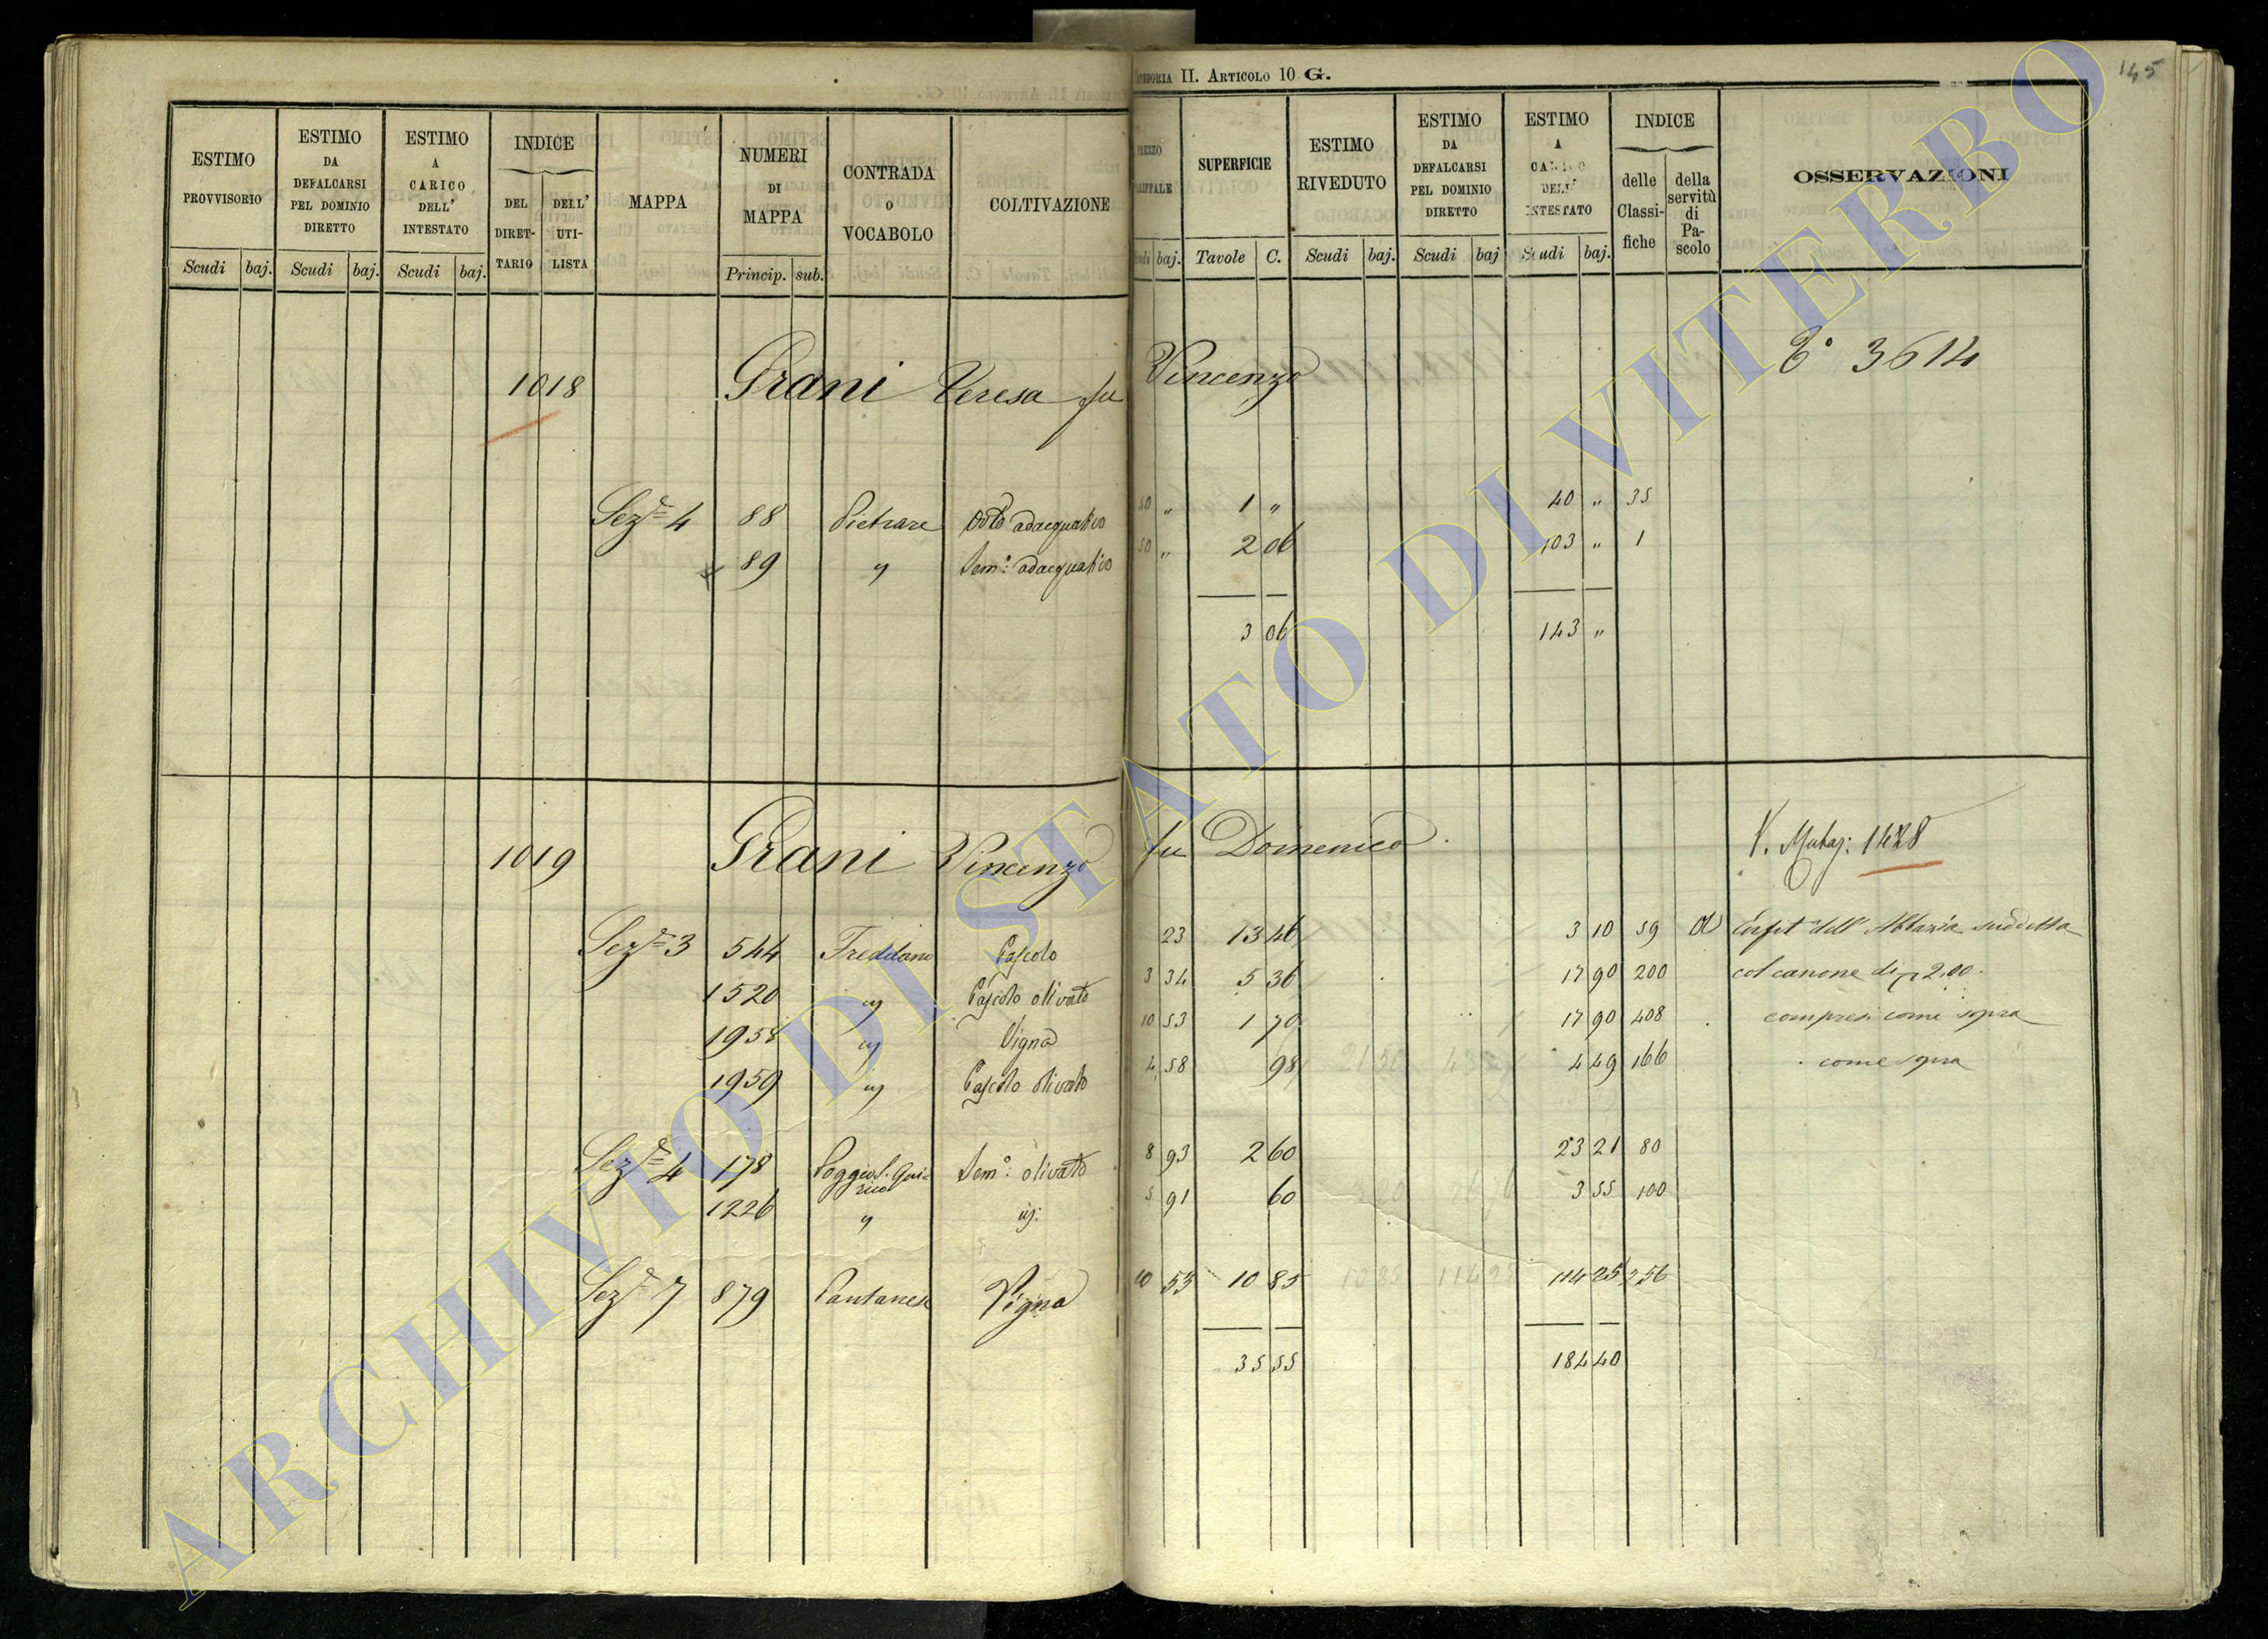 CATEGORIA II. ARTICOLO 10 G.
145
ESTIMO PROVVISORIO
ESTIMO DA DEFALCARSI PEL DOMINIO DIRETTO
ESTIMO A CARICO DELL' INTESTATO
INDICE
DEL DIRET- TARIO
DELL' UTI- LISTA
MAPPA
NUMERI DI MAPPA
CONTRADA O VOCABOLO
COLTIVAZIONE
PREZZO TARIFFALE
SUPERFICIE
ESTIMO RIVEDUTO
ESTIMO DA DEFALCARSI PEL DOMINIO DIRETTO
ESTIMO A CARICO DELL' INTESTATO
INDICE
delle Classi- fiche
della servitù di Pa- scolo
OSSERVAZIONI
Scudi baj. Scudi baj. Scudi baj. Princip. sub. baj. Tavole C. Scudi baj. Scudi baj Scudi baj.
1018 Grani Teresa fu Vincenzo 3614
Sez.e 4 88 Pietrare Orto adacquativo 40 " 1 " 40 " 35
89 " Sem.o adacquativo 50 " 2 06 103 " 1
3 06 143 "
1019 Grani Vincenzo fu Domenico V. Mutaz: 1428
Sez.e 3 544 Freddano Pascolo 23 13 46 3 10 59 a Enfit dell' Abbazia suddetta
1520 " Pascolo olivato 3 34 5 36 17 90 200 col canone di 2,00.
1958 " Vigna 10 53 1 70 17 90 408 compresi come sopra
1959 " Pascolo olivato 4 58 98 4 49 166 come sopra
Sez.e 4 178 Poggio S. Qui- rico Sem.o olivato 8 93 2 60 23 21 80
1226 " id: 5 91 60 3 55 100
Sez.e 7 879 Pantanese Vigna 10 53 10 85 114 25 256
35 55 184 40
ARCHIVIO DI STATO DI VITERBO